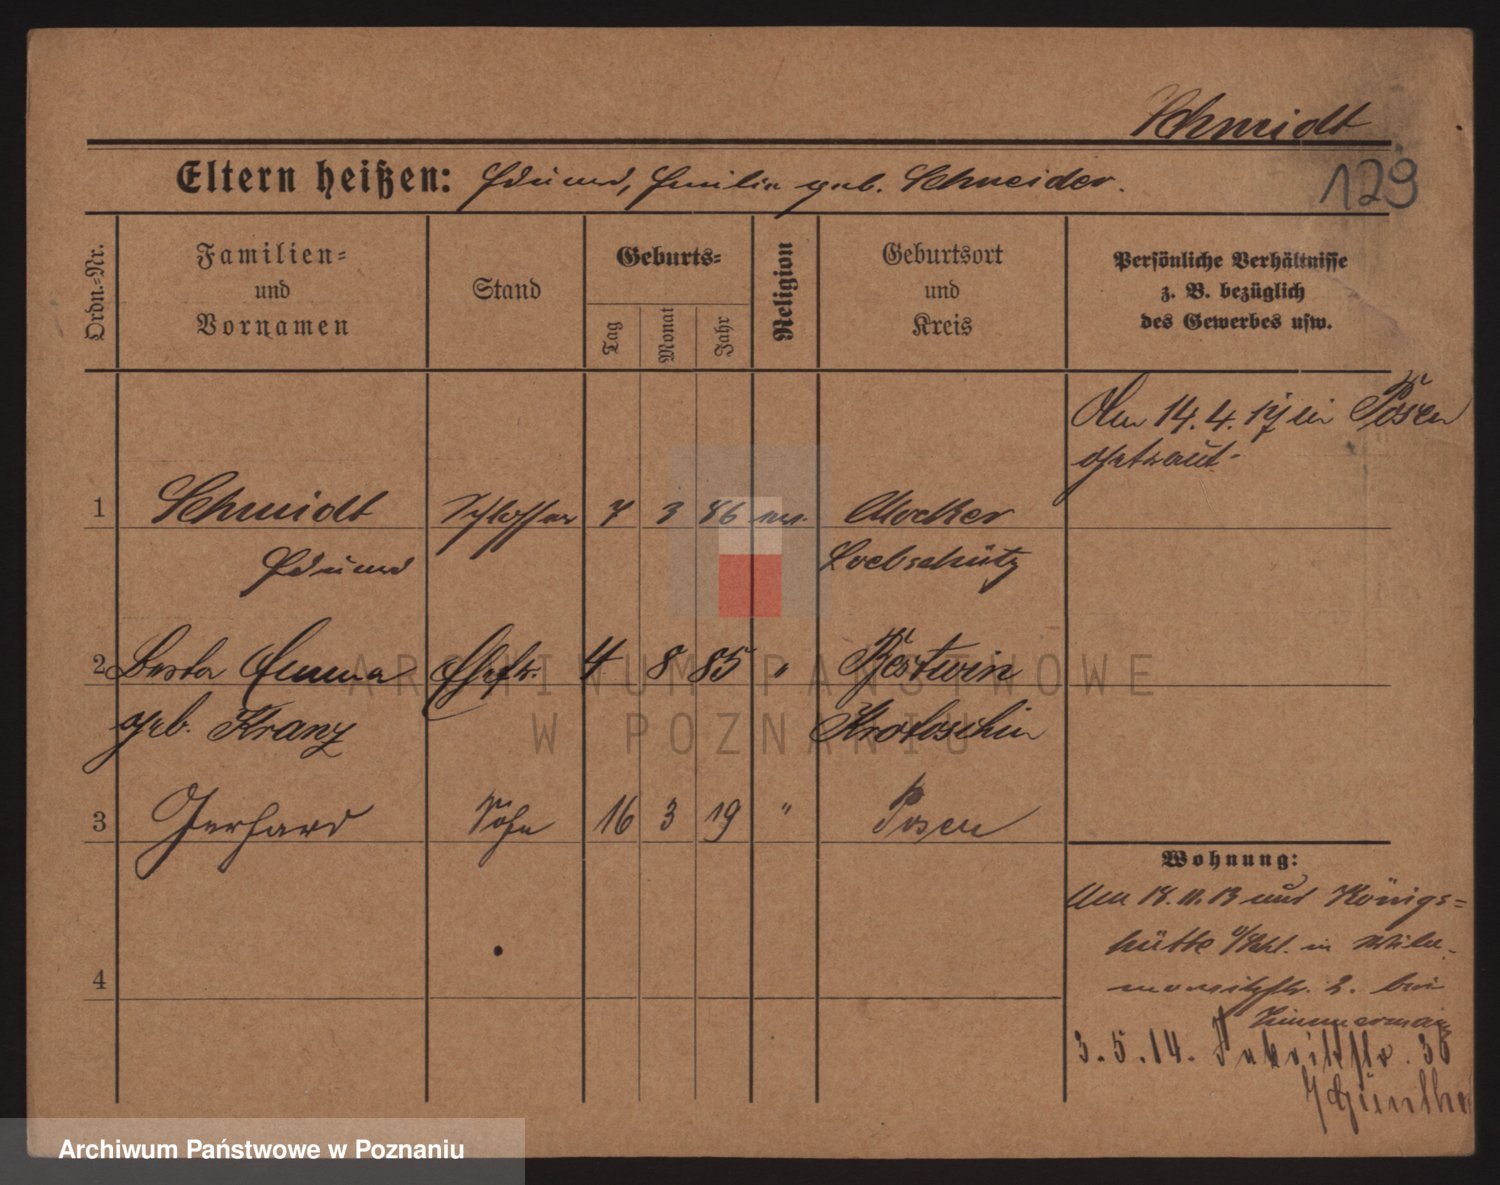 Schmidt
129
Eltern heißen: Eduard, Emilie geb. Schneider.
Ordn.-Nr.
Familien-
und
Vornamen
Stand
Geburts-
Tag
Monat
Jahr
Religion
Geburtsort
und
Kreis
Persönliche Verhältnisse
z. B. bezüglich
des Gewerbes usw.
Am 14. 4. 17 in Posen
getraut.
1 Schmidt Schlosser 7 3 86 Mocker
Eduard Leobschütz
2 Berta Emma Ehefr. 4 8 85 "
geb. Kranz Krotoschin
3 Gerhard Sohn 16 3 19 " Posen
4
Wohnung:
Am 18. 11. 13 aus Königs-
hütte O/Schl. in
2. bei
Zimmermann
3. 5. 14. Fabrikstr. 36
b/ Günther
ARCHIWUM PAŃSTWOWE
W POZNANIU
Archiwum Państwowe w Poznaniu